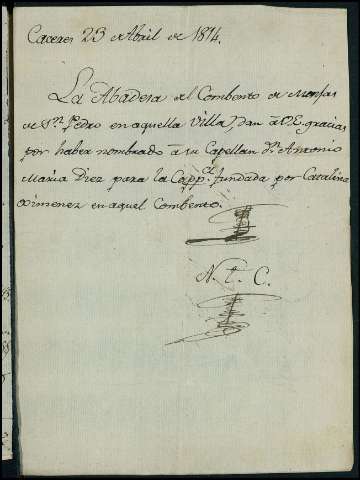 Caceres 23 de Abril de 1814.
La Abadesa del Combento de Monjas
de Sn. Pedro en aquella Villa, dan á V.E. gracias
por haber nombrado á su Capellan Dn. Antonio
Maria Diez para la Capp.a fundada por Catalina
Ximenez en aquel Combento.
N. t. C.